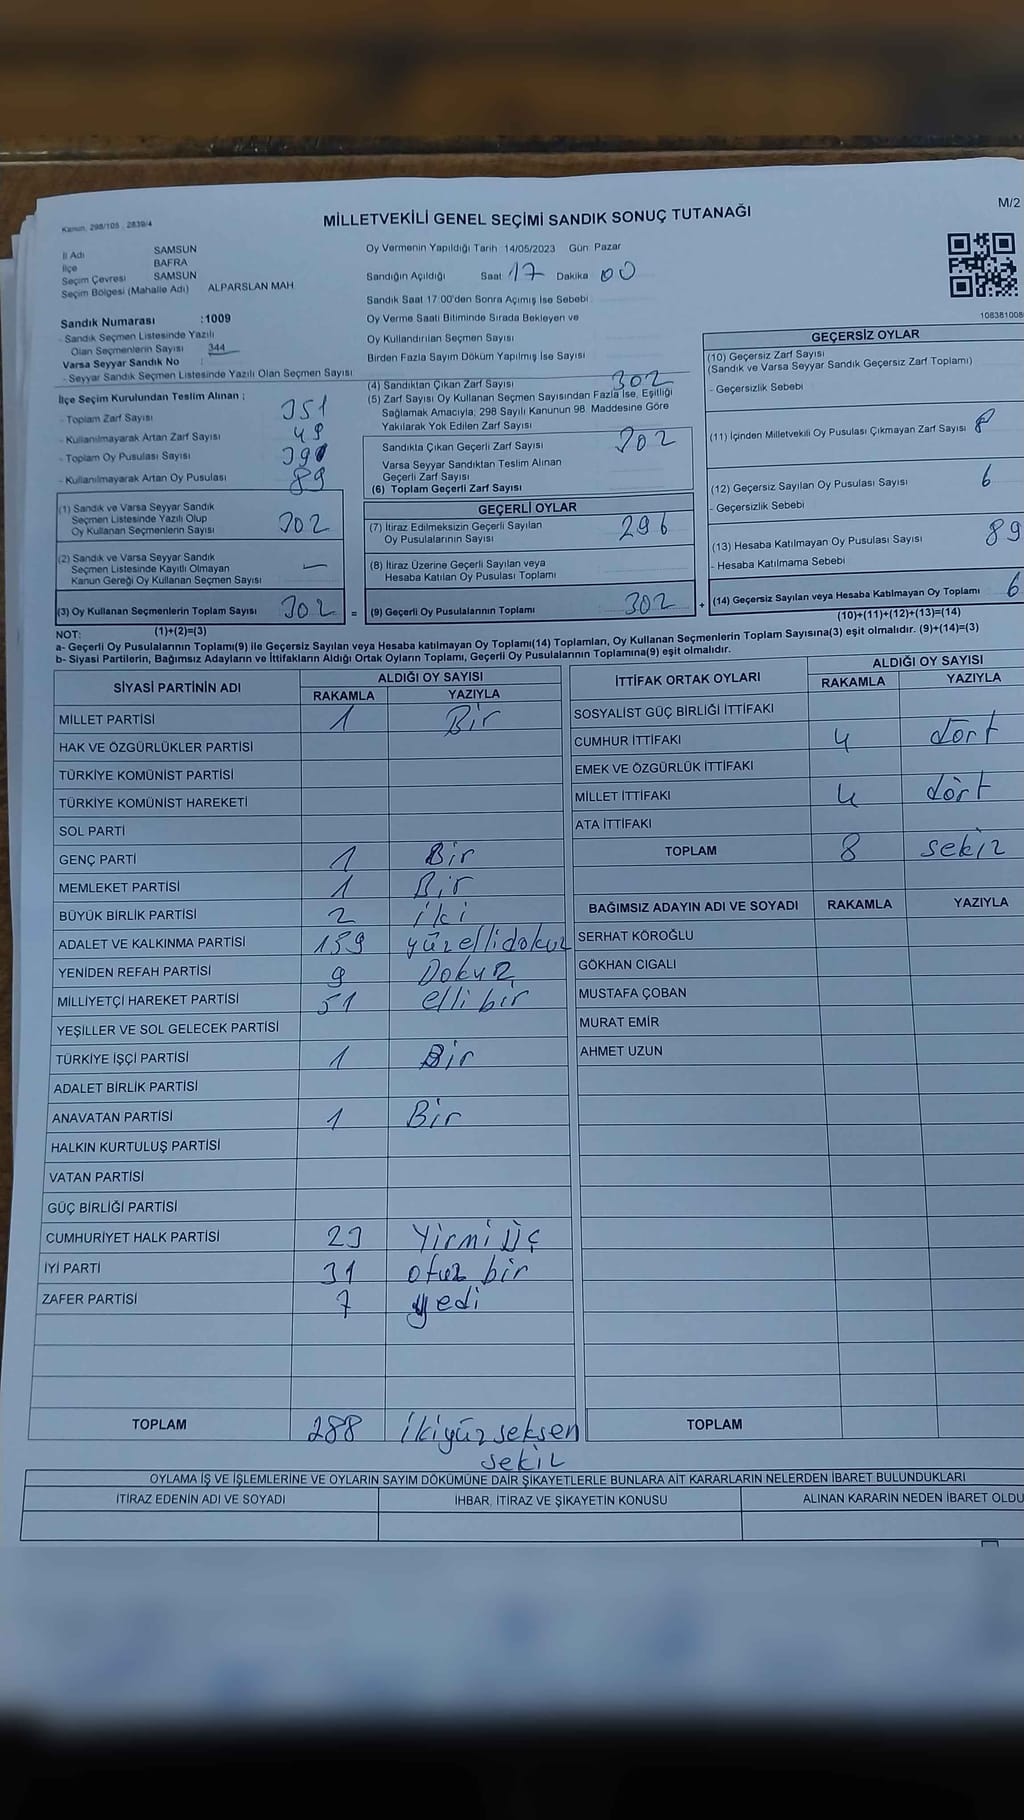 Kanun, 298/105 , 2839/4
M/2
MİLLETVEKİLİ GENEL SEÇİMİ SANDIK SONUÇ TUTANAĞI
İl Adı SAMSUN
İlçe BAFRA
Seçim Çevresi SAMSUN
Seçim Bölgesi (Mahalle Adı) ALPARSLAN MAH
Sandık Numarası :1009
- Sandık Seçmen Listesinde Yazılı
Olan Seçmenlerin Sayısı 344
Varsa Seyyar Sandık No :
- Seyyar Sandık Seçmen Listesinde Yazılı Olan Seçmen Sayısı
İlçe Seçim Kurulundan Teslim Alınan ;
- Toplam Zarf Sayısı 351
- Kullanılmayarak Artan Zarf Sayısı 49
- Toplam Oy Pusulası Sayısı
- Kullanılmayarak Artan Oy Pusulası 89
(1) Sandık ve Varsa Seyyar Sandık
Seçmen Listesinde Yazılı Olup
Oy Kullanan Seçmenlerin Sayısı 302
(2) Sandık ve Varsa Seyyar Sandık
Seçmen Listesinde Kayıtlı Olmayan
Kanun Gereği Oy Kullanan Seçmen Sayısı —
(3) Oy Kullanan Seçmenlerin Toplam Sayısı 302 =
(1)+(2)=(3)
Oy Vermenin Yapıldığı Tarih 14/05/2023 Gün Pazar
Sandığın Açıldığı Saat 17 Dakika 00
Sandık Saat 17:00'den Sonra Açımış İse Sebebi
Oy Verme Saati Bitiminde Sırada Bekleyen ve
Oy Kullandırılan Seçmen Sayısı
Birden Fazla Sayım Döküm Yapılmış İse Sayısı
(4) Sandıktan Çıkan Zarf Sayısı 302
(5) Zarf Sayısı Oy Kullanan Seçmen Sayısından Fazla İse, Eşitliği
Sağlamak Amacıyla, 298 Sayılı Kanunun 98. Maddesine Göre
Yakılarak Yok Edilen Zarf Sayısı
Sandıkta Çıkan Geçerli Zarf Sayısı 302
Varsa Seyyar Sandıktan Teslim Alınan
Geçerli Zarf Sayısı
(6) Toplam Geçerli Zarf Sayısı
GEÇERLİ OYLAR
(7) İtiraz Edilmeksizin Geçerli Sayılan
Oy Pusulalarının Sayısı 296
(8) İtiraz Üzerine Geçerli Sayılan veya
Hesaba Katılan Oy Pusulası Toplamı
(9) Geçerli Oy Pusulalarının Toplamı 302 +
108381008
GEÇERSİZ OYLAR
(10) Geçersiz Zarf Sayısı
(Sandık ve Varsa Seyyar Sandık Geçersiz Zarf Toplamı)
- Geçersizlik Sebebi
(11) İçinden Milletvekili Oy Pusulası Çıkmayan Zarf Sayısı
(12) Geçersiz Sayılan Oy Pusulası Sayısı 6
- Geçersizlik Sebebi
(13) Hesaba Katılmayan Oy Pusulası Sayısı 89
- Hesaba Katılmama Sebebi
(14) Geçersiz Sayılan veya Hesaba Katılmayan Oy Toplamı 6
(10)+(11)+(12)+(13)=(14)
NOT:
a- Geçerli Oy Pusulalarının Toplamı(9) ile Geçersiz Sayılan veya Hesaba katılmayan Oy Toplamı(14) Toplamları, Oy Kullanan Seçmenlerin Toplam Sayısına(3) eşit olmalıdır. (9)+(14)=(3)
b- Siyasi Partilerin, Bağımsız Adayların ve İttifakların Aldığı Ortak Oyların Toplamı, Geçerli Oy Pusulalarının Toplamına(9) eşit olmalıdır.
SİYASİ PARTİNİN ADI ALDIĞI OY SAYISI
RAKAMLA YAZIYLA
MİLLET PARTİSİ 1 Bir
HAK VE ÖZGÜRLÜKLER PARTİSİ
TÜRKİYE KOMÜNİST PARTİSİ
TÜRKİYE KOMÜNİST HAREKETİ
SOL PARTİ
GENÇ PARTİ 1 Bir
MEMLEKET PARTİSİ 1 Bir
BÜYÜK BİRLİK PARTİSİ 2 iki
ADALET VE KALKINMA PARTİSİ 159 yüzellidokuz
YENİDEN REFAH PARTİSİ 9 Dokuz
MİLLİYETÇİ HAREKET PARTİSİ 51 elli bir
YEŞİLLER VE SOL GELECEK PARTİSİ
TÜRKİYE İŞÇİ PARTİSİ 1 Bir
ADALET BİRLİK PARTİSİ
ANAVATAN PARTİSİ 1 Bir
HALKIN KURTULUŞ PARTİSİ
VATAN PARTİSİ
GÜÇ BİRLİĞİ PARTİSİ
CUMHURİYET HALK PARTİSİ 23 Yirmi üç
İYİ PARTİ 31 otuz bir
ZAFER PARTİSİ 7 yedi
TOPLAM 288 ikiyüz seksen
sekiz
İTTİFAK ORTAK OYLARI ALDIĞI OY SAYISI
RAKAMLA YAZIYLA
SOSYALİST GÜÇ BİRLİĞİ İTTİFAKI
CUMHUR İTTİFAKI 4 dört
EMEK VE ÖZGÜRLÜK İTTİFAKI
MİLLET İTTİFAKI 4 dört
ATA İTTİFAKI
TOPLAM 8 sekiz
BAĞIMSIZ ADAYIN ADI VE SOYADI RAKAMLA YAZIYLA
SERHAT KÖROĞLU
GÖKHAN CIGALI
MUSTAFA ÇOBAN
MURAT EMİR
AHMET UZUN
TOPLAM
OYLAMA İŞ VE İŞLEMLERİNE VE OYLARIN SAYIM DÖKÜMÜNE DAİR ŞİKAYETLERLE BUNLARA AİT KARARLARIN NELERDEN İBARET BULUNDUKLARI
İTİRAZ EDENİN ADI VE SOYADI İHBAR, İTİRAZ VE ŞİKAYETİN KONUSU ALINAN KARARIN NEDEN İBARET OLDU